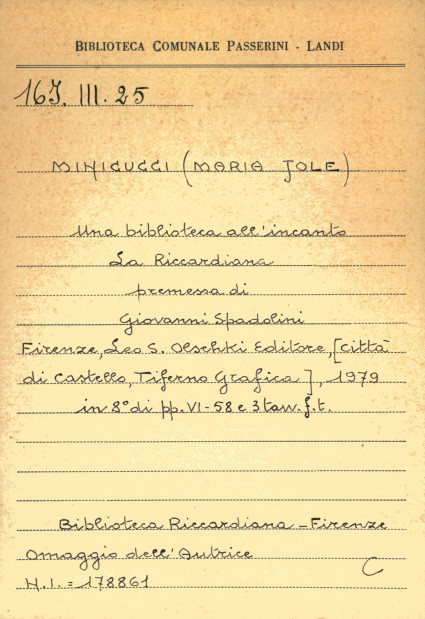 BIBLIOTECA COMUNALE PASSERINI - LANDI
16J. III. 25
MINICUGGI (MARIA JOLE)
Una biblioteca all'incanto
La Riccardiana
premessa di
Giovanni Spadolini
Firenze, Leo S. Olschki Editore, [Città
di Castello, Tiferno Grafica], 1979
in 8° di pp. VI-58 e 3 tavv. f.t.
Biblioteca Riccardiana - Firenze
Omaggio dell'Autrice
C
N.I. = 178861